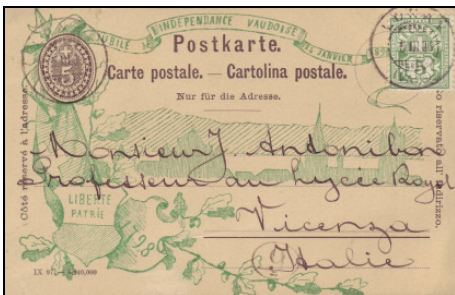 JUBILÉ INDEPENDANCE VAUDOISE JANVIER
Postkarte.
5
5
Carte postale. — Cartolina postale.
Nur für die Adresse.
Côté réservé à l'adresse.
riservato all' indirizzo.
Monsieur J Antonibon
Professeur au Lycée Royal
LIBERTÉ
PATRIE
Vicenza
1798
Italie
IX 97.